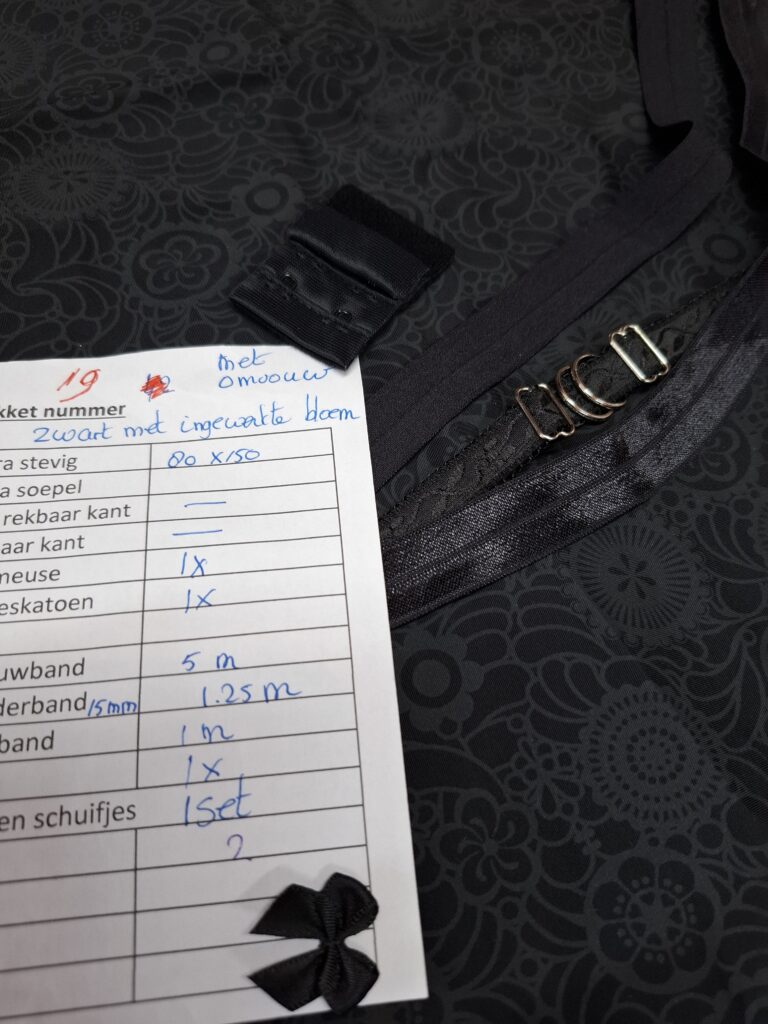 met
19 omvouw
kket nummer
zwart met ingewerkte bloem
ra stevig 80 x150
a soepel
rekbaar kant —
aar kant —
neuse 1x
eskatoen 1x
uwband 5 m
derband 15mm 1.25 m
band 1 m
1x
en schuifjes 1set
2